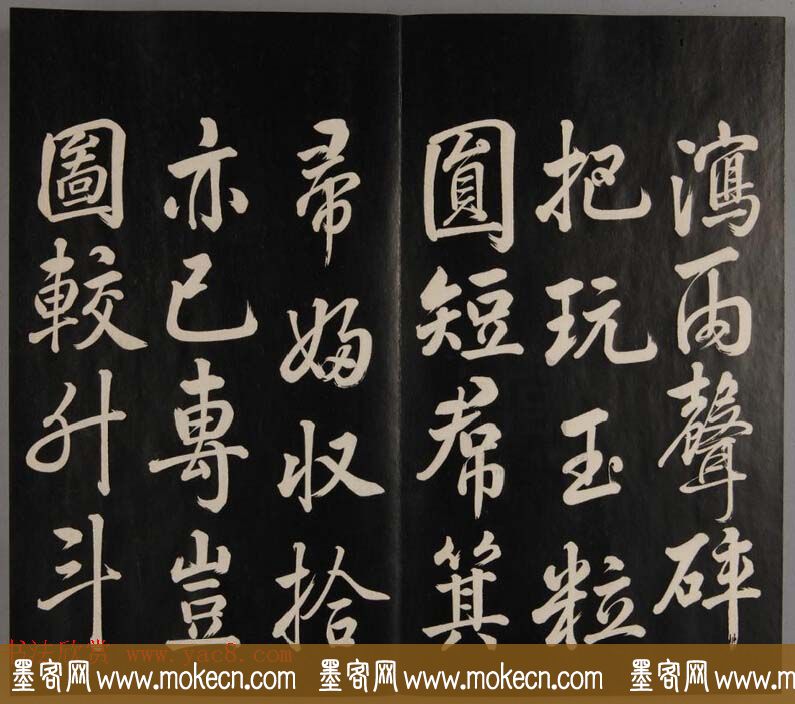 瀉雨聲碎
把玩玉粒
圓短帬箕
帚婦収拾
亦已專豈
圖較升斗
书法欣赏 www.yac8.com
墨客网 www.mokecn.com 墨客网 www.mokecn.com 墨客网 www.mokecn.com